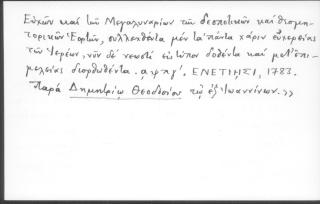 Εὐχῶν καὶ τῶν Μεγαλυναρίων τῶν δεσποτικῶν καὶ θεομη-
τορικῶν Ἑορτῶν, συλλεχθέντα μὲν τὰ πάντα χάριν εὐχερείας
τῶν Ἱερέων, νῦν δὲ νεωστὶ εἰς τύπον δοθέντα καὶ μετ' ἐπι-
μελείας διορθωθέντα. αψπγ'. ΕΝΕΤΙΗΣΙ, 1783.
Παρὰ Δημητρίῳ Θεοδοσίου τῷ ἐξ Ἰωαννίνων.»